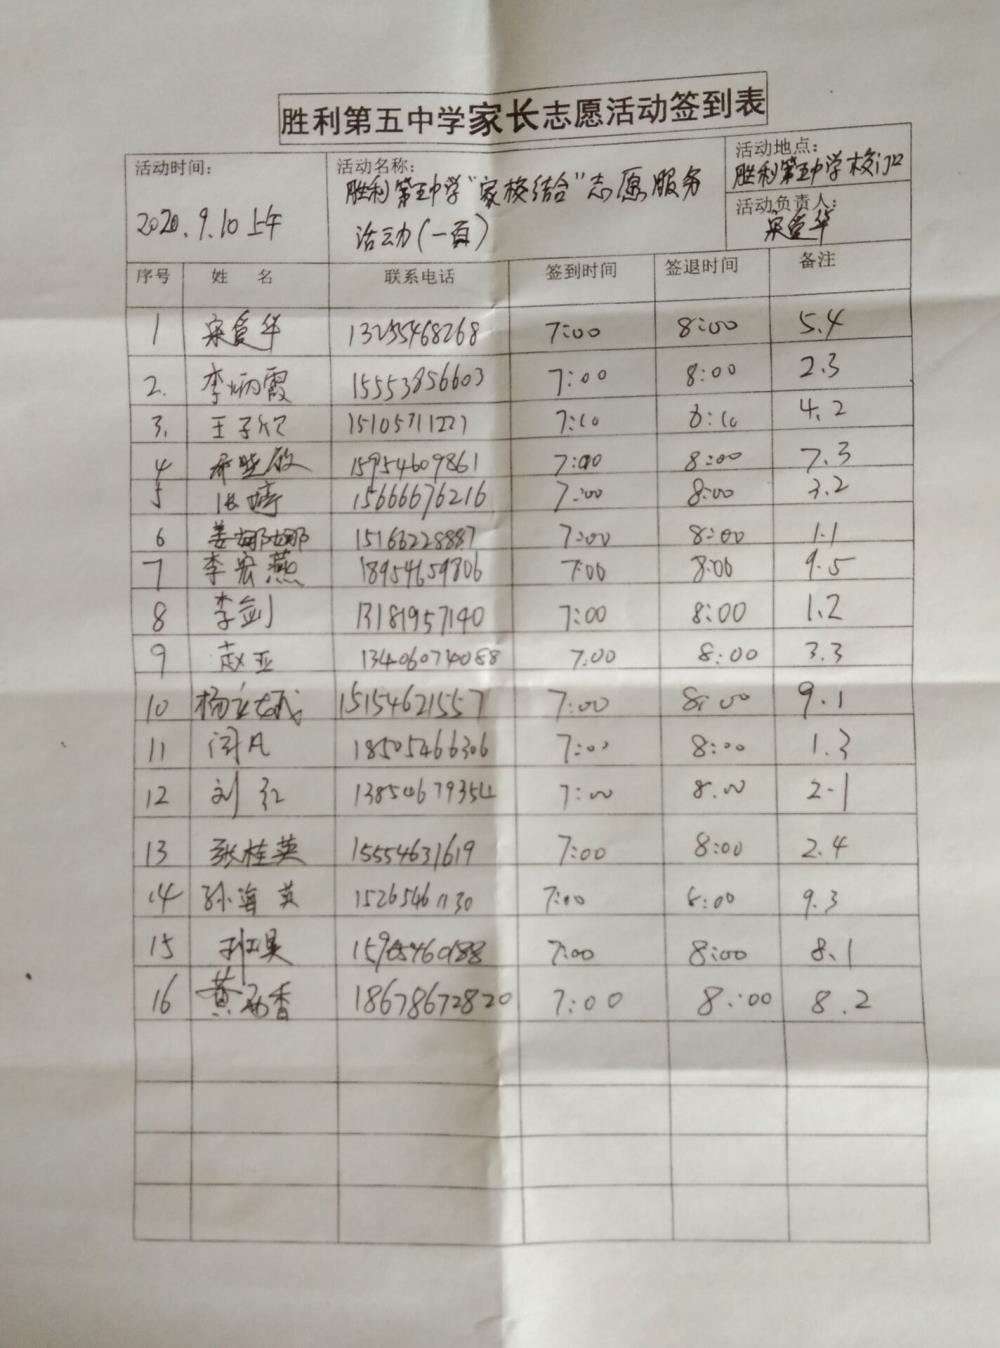 胜利第五中学家长志愿活动签到表
活动时间：
2020.9.10上午
活动名称：
胜利第五中学"家校结合"志愿服务
活动(一百)
活动地点：
胜利第五中学校门口
活动负责人：
宋爱华
序号 姓 名 联系电话 签到时间 签退时间 备注
1 宋爱华 13255468268 7:00 8:00 5.4
2. 李炳霞 15553856603 7:00 8:00 2.3
3. 王子欣 15105711227 7:10 8:10 4.2
4 15954609861 7:00 8:00 7.3
5 张婷 15666676216 7:00 8:00 3.2
6 姜娜娜 15166228887 7:00 8:00 1.1
7 李宏燕 18954659806 7:00 8:00 9.5
8 李剑 13181957140 7:00 8:00 1.2
9 赵亚 13406074088 7:00 8:00 3.3
10 杨 15154621557 7:00 8:00 9.1
11 闫凡 18505466306 7:00 8:00 1.3
12 刘红 13854679354 7:00 8.00 2-1
13 张桂英 15554631619 7:00 8:00 2.4
14 孙海英 15265461130 7:00 8:00 9.3
15 15905460188 7:00 8:00 8.1
16 黄香 18678672820 7:00 8:00 8.2